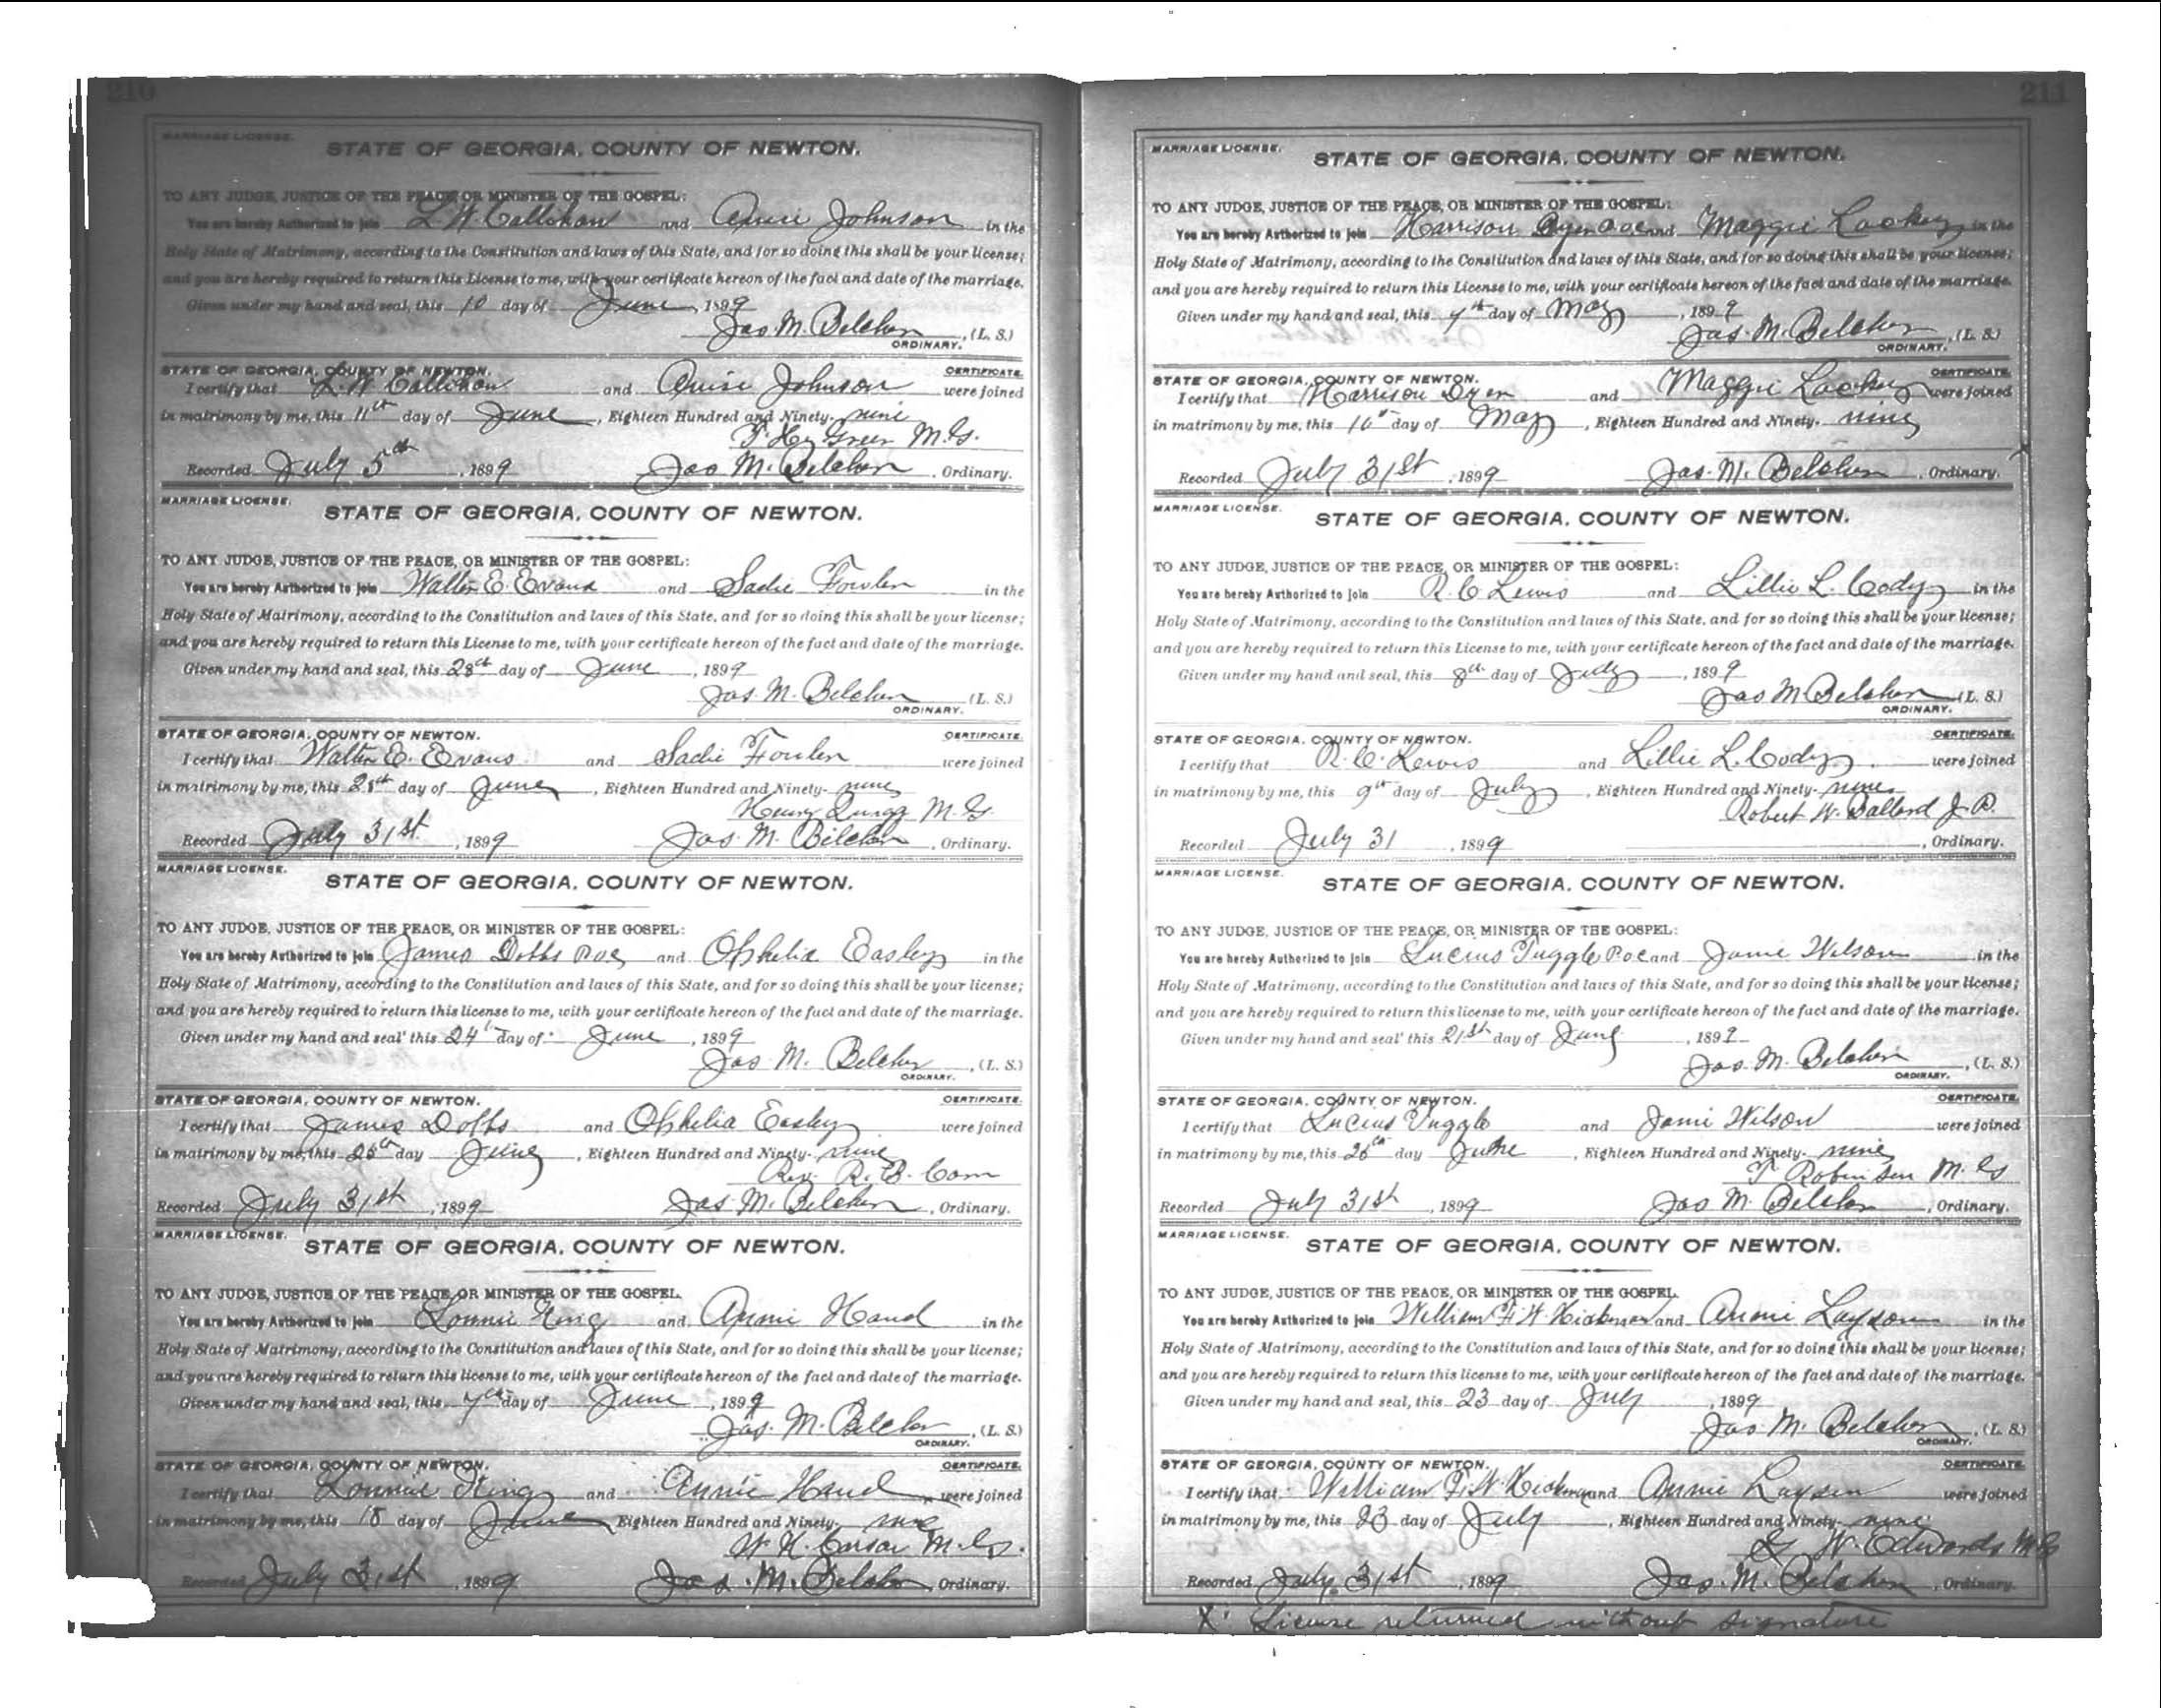 210
MARRIAGE LICENSE.
STATE OF GEORGIA, COUNTY OF NEWTON.
TO ANY JUDGE, JUSTICE OF THE PEACE, OR MINISTER OF THE GOSPEL:
You are hereby Authorized to join L. W. Callihan and Annie Johnson in the
Holy State of Matrimony, according to the Constitution and laws of this State, and for so doing this shall be your license;
and you are hereby required to return this License to me, with your certificate hereon of the fact and date of the marriage.
Given under my hand and seal, this 10 day of June, 1899
Jas. M. Belcher, (L. S.)
ORDINARY.
STATE OF GEORGIA, COUNTY OF NEWTON. CERTIFICATE.
I certify that L. W. Callihan and Annie Johnson were joined
in matrimony by me, this 11th day of June, Eighteen Hundred and Ninety-nine
Green M. G.
Recorded July 5th, 1899 Jas M. Belcher, Ordinary.
MARRIAGE LICENSE.
STATE OF GEORGIA, COUNTY OF NEWTON.
TO ANY JUDGE, JUSTICE OF THE PEACE, OR MINISTER OF THE GOSPEL:
You are hereby Authorized to join Walter E. Evans and Sadie Fowler in the
Holy State of Matrimony, according to the Constitution and laws of this State, and for so doing this shall be your license;
and you are hereby required to return this License to me, with your certificate hereon of the fact and date of the marriage.
Given under my hand and seal, this 28th day of June, 1899
Jas. M. Belcher (L. S.)
ORDINARY.
STATE OF GEORGIA, COUNTY OF NEWTON. CERTIFICATE.
I certify that Walter E. Evans and Sadie Fowler were joined
in matrimony by me, this 28th day of June, Eighteen Hundred and Ninety-nine
Henry Quigg M. G.
Recorded July 31st, 1899 Jas. M. Belcher, Ordinary.
MARRIAGE LICENSE.
STATE OF GEORGIA, COUNTY OF NEWTON.
TO ANY JUDGE, JUSTICE OF THE PEACE, OR MINISTER OF THE GOSPEL:
You are hereby Authorized to join James Dobbs and Ophelia Easley in the
Holy State of Matrimony, according to the Constitution and laws of this State, and for so doing this shall be your license;
and you are hereby required to return this license to me, with your certificate hereon of the fact and date of the marriage.
Given under my hand and seal' this 24th day of June, 1899
Jas M. Belcher, (L. S.)
ORDINARY.
STATE OF GEORGIA, COUNTY OF NEWTON. CERTIFICATE.
I certify that James Dobbs and Ophelia Easley were joined
in matrimony by me, this 25th day June, Eighteen Hundred and Ninety-nine
Rev. R. B.
Recorded July 31st, 1899 Jas. M. Belcher, Ordinary.
MARRIAGE LICENSE.
STATE OF GEORGIA, COUNTY OF NEWTON.
TO ANY JUDGE, JUSTICE OF THE PEACE, OR MINISTER OF THE GOSPEL.
You are hereby Authorized to join Lonnie King and Annie Hand in the
Holy State of Matrimony, according to the Constitution and laws of this State, and for so doing this shall be your license;
and you are hereby required to return this license to me, with your certificate hereon of the fact and date of the marriage.
Given under my hand and seal, this 7th day of June, 1899
Jas. M. Belcher, (L. S.)
ORDINARY.
STATE OF GEORGIA, COUNTY OF NEWTON. CERTIFICATE.
I certify that Lonnie King and Annie Hand were joined
in matrimony by me, this 18 day of June Eighteen Hundred and Ninety-nine
W. H. M. G.
Recorded July 31st, 1899 Jas. M. Belcher, Ordinary.
211
MARRIAGE LICENSE.
STATE OF GEORGIA, COUNTY OF NEWTON.
TO ANY JUDGE, JUSTICE OF THE PEACE, OR MINISTER OF THE GOSPEL:
You are hereby Authorized to join Harrison Dyer and Maggie Lackey in the
Holy State of Matrimony, according to the Constitution and laws of this State, and for so doing this shall be your license;
and you are hereby required to return this License to me, with your certificate hereon of the fact and date of the marriage.
Given under my hand and seal, this 7th day of May, 1899
Jas. M. Belcher, (L. S.)
ORDINARY.
STATE OF GEORGIA, COUNTY OF NEWTON. CERTIFICATE.
I certify that Harrison Dyer and Maggie Lackey were joined
in matrimony by me, this 16th day of May, Eighteen Hundred and Ninety-nine
X
Recorded July 31st, 1899 Jas. M. Belcher, Ordinary.
MARRIAGE LICENSE.
STATE OF GEORGIA, COUNTY OF NEWTON.
TO ANY JUDGE, JUSTICE OF THE PEACE, OR MINISTER OF THE GOSPEL:
You are hereby Authorized to join R. C. Lewis and Lillie L. Cody in the
Holy State of Matrimony, according to the Constitution and laws of this State, and for so doing this shall be your license;
and you are hereby required to return this License to me, with your certificate hereon of the fact and date of the marriage.
Given under my hand and seal, this 8th day of July, 1899
Jas M Belcher (L. S.)
ORDINARY.
STATE OF GEORGIA, COUNTY OF NEWTON. CERTIFICATE.
I certify that R. C. Lewis and Lillie L. Cody were joined
in matrimony by me, this 9th day of July, Eighteen Hundred and Ninety-nine
Robert W. Ballard J. P.
Recorded July 31, 1899 , Ordinary.
MARRIAGE LICENSE.
STATE OF GEORGIA, COUNTY OF NEWTON.
TO ANY JUDGE, JUSTICE OF THE PEACE, OR MINISTER OF THE GOSPEL:
You are hereby Authorized to join Lucius Tuggle and Janie Wilson in the
Holy State of Matrimony, according to the Constitution and laws of this State, and for so doing this shall be your license;
and you are hereby required to return this license to me, with your certificate hereon of the fact and date of the marriage.
Given under my hand and seal' this 21st day of June, 1899
Jas. M. Belcher, (L. S.)
ORDINARY.
STATE OF GEORGIA, COUNTY OF NEWTON. CERTIFICATE.
I certify that Lucius Tuggle and Janie Wilson were joined
in matrimony by me, this 26th day June, Eighteen Hundred and Ninety-nine
T Robinson M. G
Recorded July 31st, 1899 Jas M. Belcher, Ordinary.
MARRIAGE LICENSE.
STATE OF GEORGIA, COUNTY OF NEWTON.
TO ANY JUDGE, JUSTICE OF THE PEACE, OR MINISTER OF THE GOSPEL.
You are hereby Authorized to join William F. W. Hickman and Annie Layson in the
Holy State of Matrimony, according to the Constitution and laws of this State, and for so doing this shall be your license;
and you are hereby required to return this license to me, with your certificate hereon of the fact and date of the marriage.
Given under my hand and seal, this 23 day of July, 1899
Jas M. Belcher, (L. S.)
ORDINARY.
STATE OF GEORGIA, COUNTY OF NEWTON. CERTIFICATE.
I certify that William F. W. Hickman and Annie Layson were joined
in matrimony by me, this 23 day of July, Eighteen Hundred and Ninety-nine
W. Edwards M G
Recorded July 31st, 1899 Jas. M. Belcher, Ordinary.
X: License returned without signature